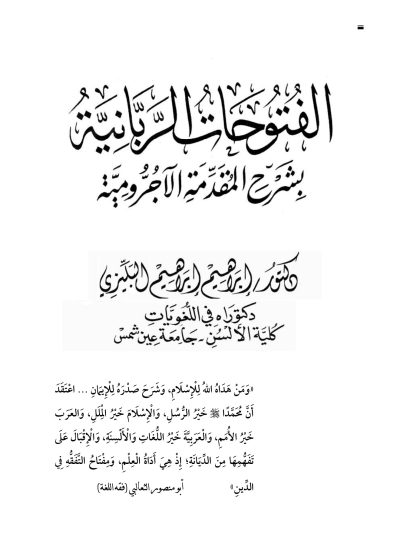 الفُتُوحَاتُ الرَّبَّانِيَّةُ
بِشَرْحِ المُقَدِّمَةِ الآجُرُّومِيَّةِ
دكتور/ إبراهيم إبراهيم البكيزي
دكتوراه في اللغويات
كلية الألسن - جامعة عين شمس
«وَمَنْ هَدَاهُ اللهُ لِلْإِسْلَامِ، وَشَرَحَ صَدْرَهُ لِلْإِيمَانِ ... اعْتَقَدَ
أَنَّ مُحَمَّدًا ﷺ خَيْرُ الرُّسُلِ، وَالْإِسْلَامَ خَيْرُ الْمِلَلِ، وَالعَرَبَ
خَيْرُ الأُمَمِ، وَالْعَرَبِيَّةَ خَيْرُ اللُّغَاتِ وَالْأَلْسِنَةِ، وَالْإِقْبَالَ عَلَى
تَفَهُّمِهَا مِنَ الدِّيَانَةِ؛ إِذْ هِيَ أَدَاةُ الْعِلْمِ، وَمِفْتَاحُ التَّفَقُّهِ فِي
الدِّينِ» أبو منصور الثعالبي (فقه اللغة)